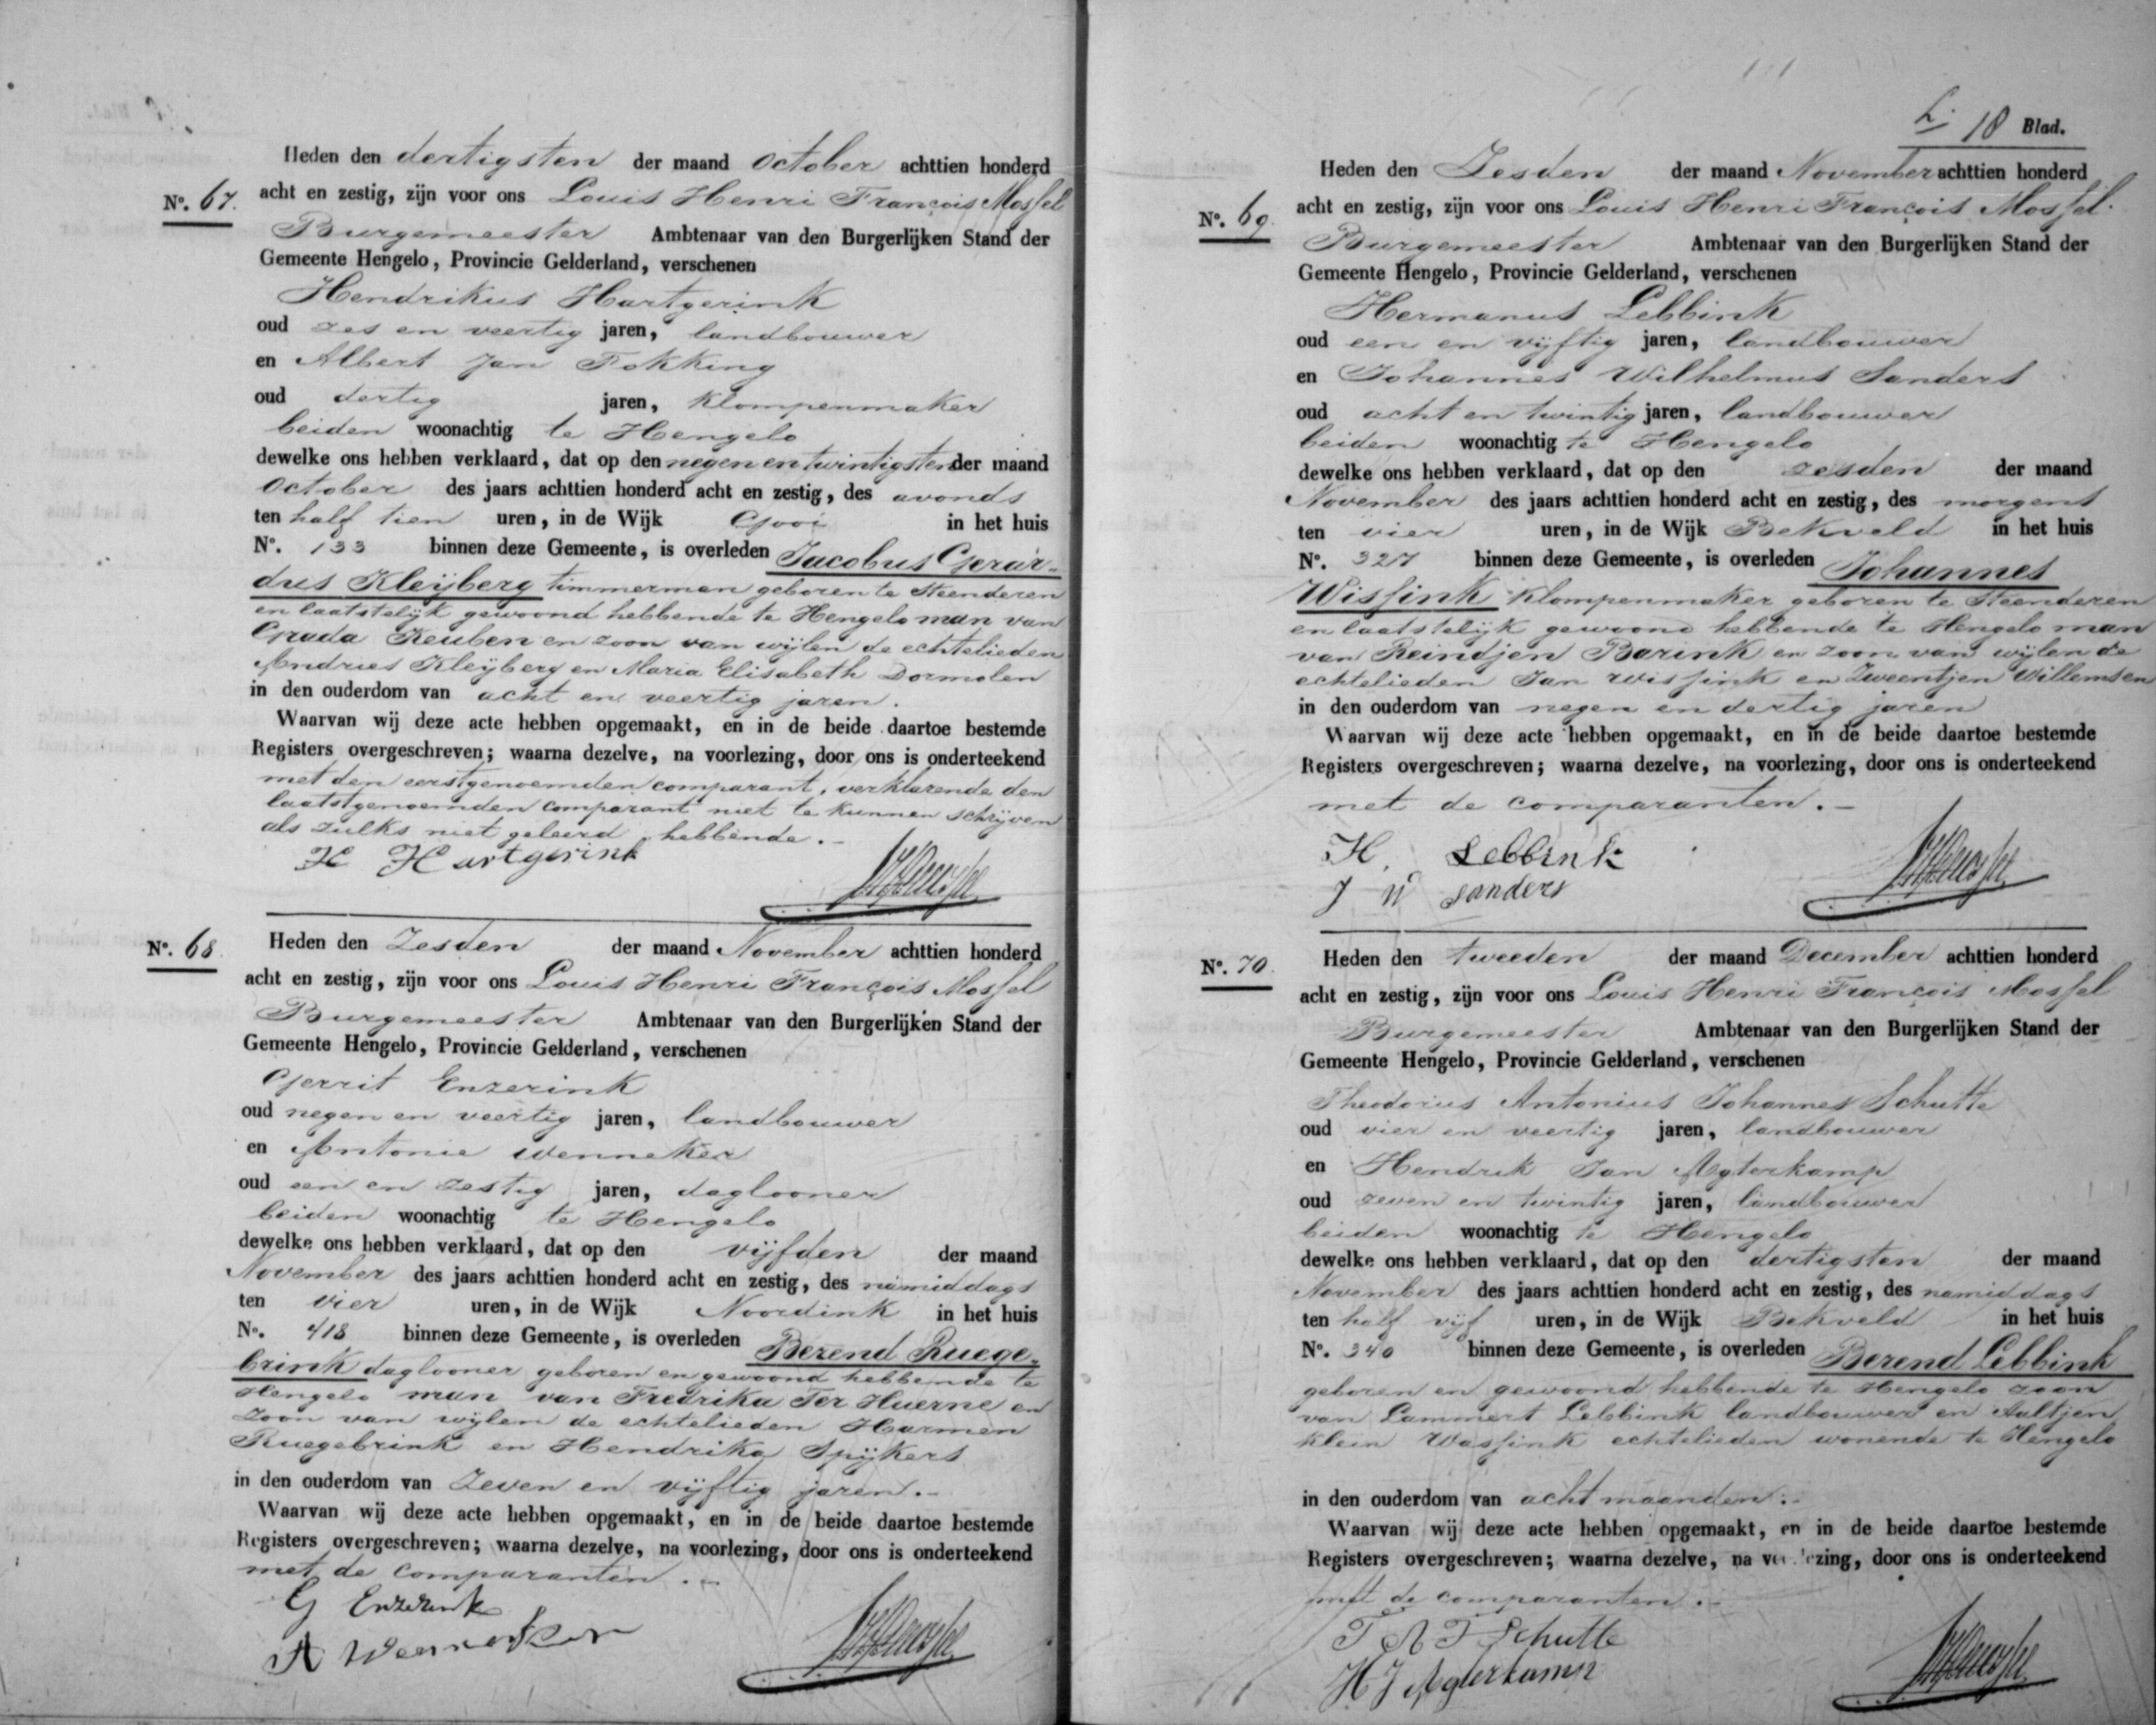 Heden den dertigsten der maand October achttien honderd
No. 67. acht en zestig, zijn voor ons Louis Henri François Mossel
Burgemeester Ambtenaar van den Burgerlijken Stand der
Gemeente Hengelo, Provincie Gelderland, verschenen
Hendrikus Hartgerink
oud zes en veertig jaren, landbouwer
en Albert Jan Fokking
oud dertig jaren, klompenmaker
beiden woonachtig te Hengelo
dewelke ons hebben verklaard, dat op den negen en twintigsten der maand
October des jaars achttien honderd acht en zestig, des avonds
ten half tien uren, in de Wijk Gooi in het huis
No. 133 binnen deze Gemeente, is overleden Jacobus Gerar-
dus Kleijberg timmerman geboren te Steenderen
en laatstelijk gewoond hebbende te Hengelo man van
Grada Keuben en zoon van wijlen de echtelieden
Andries Kleijberg en Maria Elisabeth Dormolen
in den ouderdom van acht en veertig jaren.
Waarvan wij deze acte hebben opgemaakt, en in de beide daartoe bestemde
Registers overgeschreven; waarna dezelve, na voorlezing, door ons is onderteekend
met den eerstgenoemden comparant, verklarende den
laatstgenoemden comparant niet te kunnen schrijven
als zulks niet geleerd hebbende.-
H Hartgerink
No. 68. Heden den Zesden der maand November achttien honderd
acht en zestig, zijn voor ons Louis Henri François Mossel
Burgemeester Ambtenaar van den Burgerlijken Stand der
Gemeente Hengelo, Provincie Gelderland, verschenen
Gerrit Enzerink
oud negen en veertig jaren, landbouwer
en Antonie Wenneker
oud een en zestig jaren, daglooner
beiden woonachtig te Hengelo
dewelke ons hebben verklaard, dat op den vijfden der maand
November des jaars achttien honderd acht en zestig, des namiddags
ten vier uren, in de Wijk Noordink in het huis
No. 418 binnen deze Gemeente, is overleden Berend Ruege-
brink daglooner geboren en gewoond hebbende te
Hengelo man van Fredrika Ter Huerne en
zoon van wijlen de echtelieden Harmen
Ruegebrink en Hendrika Spijkers
in den ouderdom van Zeven en vijftig jaren.-
Waarvan wij deze acte hebben opgemaakt, en in de beide daartoe bestemde
Registers overgeschreven; waarna dezelve, na voorlezing, door ons is onderteekend
met de comparanten.-
G Enzerink
A Wenneker
18 Blad.
Heden den Zesden der maand November achttien honderd
No. 69. acht en zestig, zijn voor ons Louis Henri François Mossel.
Burgemeester Ambtenaar van den Burgerlijken Stand der
Gemeente Hengelo, Provincie Gelderland, verschenen
Hermanus Lebbink
oud een en vijftig jaren, landbouwer
en Johannes Wilhelmus Sanders
oud acht en twintig jaren, landbouwer
beiden woonachtig te Hengelo
dewelke ons hebben verklaard, dat op den zesden der maand
November des jaars achttien honderd acht en zestig, des morgens
ten vier uren, in de Wijk Bekveld in het huis
No. 327 binnen deze Gemeente, is overleden Johannes
Wissink klompenmaker geboren te Steenderen
en laatstelijk gewoond hebbende te Hengelo man
van Reindjen Barink en zoon van wijlen de
echtelieden Jan Wissink en Zweentjen Willemsen
in den ouderdom van negen en dertig jaren
Waarvan wij deze acte hebben opgemaakt, en in de beide daartoe bestemde
Registers overgeschreven; waarna dezelve, na voorlezing, door ons is onderteekend
met de comparanten.-
H. Lebbink
J W Sanders
No. 70. Heden den tweeden der maand December achttien honderd
acht en zestig, zijn voor ons Louis Henri François Mossel
Burgemeester Ambtenaar van den Burgerlijken Stand der
Gemeente Hengelo, Provincie Gelderland, verschenen
Theodorus Antonius Johannes Schutte
oud vier en veertig jaren, landbouwer
en Hendrik Jan Agterkamp
oud zeven en twintig jaren, landbouwer
beiden woonachtig te Hengelo
dewelke ons hebben verklaard, dat op den dertigsten der maand
November des jaars achttien honderd acht en zestig, des namiddags
ten half vijf uren, in de Wijk Bekveld in het huis
No. 340 binnen deze Gemeente, is overleden Berend Lebbink
geboren en gewoond hebbende te Hengelo zoon
van Lammert Lebbink landbouwer en Aaltjen
klein Wassink echtelieden wonende te Hengelo
in den ouderdom van acht maanden.-
Waarvan wij deze acte hebben opgemaakt, en in de beide daartoe bestemde
Registers overgeschreven; waarna dezelve, na voorlezing, door ons is onderteekend
met de comparanten.-
T A J Schutte
H J Agterkamp